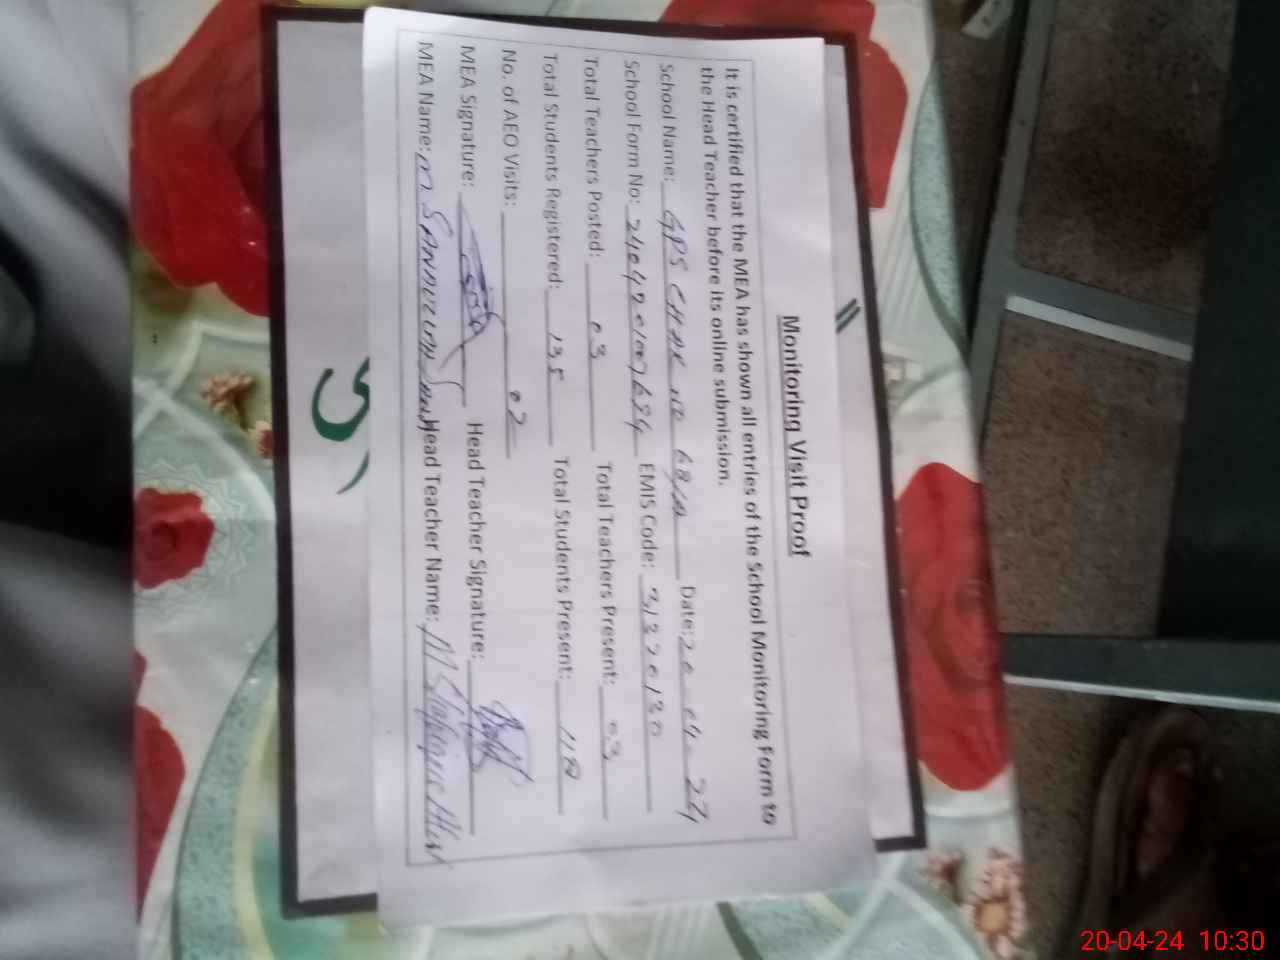 Monitoring Visit Proof
It is certified that the MEA has shown all entries of the School Monitoring Form to
the Head Teacher before its online submission.
School Name: GPS CHAK NO 68/ Date: 20-04-24
School Form No: EMIS Code:
Total Teachers Posted: 03 Total Teachers Present: 03
Total Students Registered: 135 Total Students Present: 118
No. of AEO Visits: 02
MEA Signature: Head Teacher Signature:
MEA Name: M Head Teacher Name: M
20-04-24 10:30